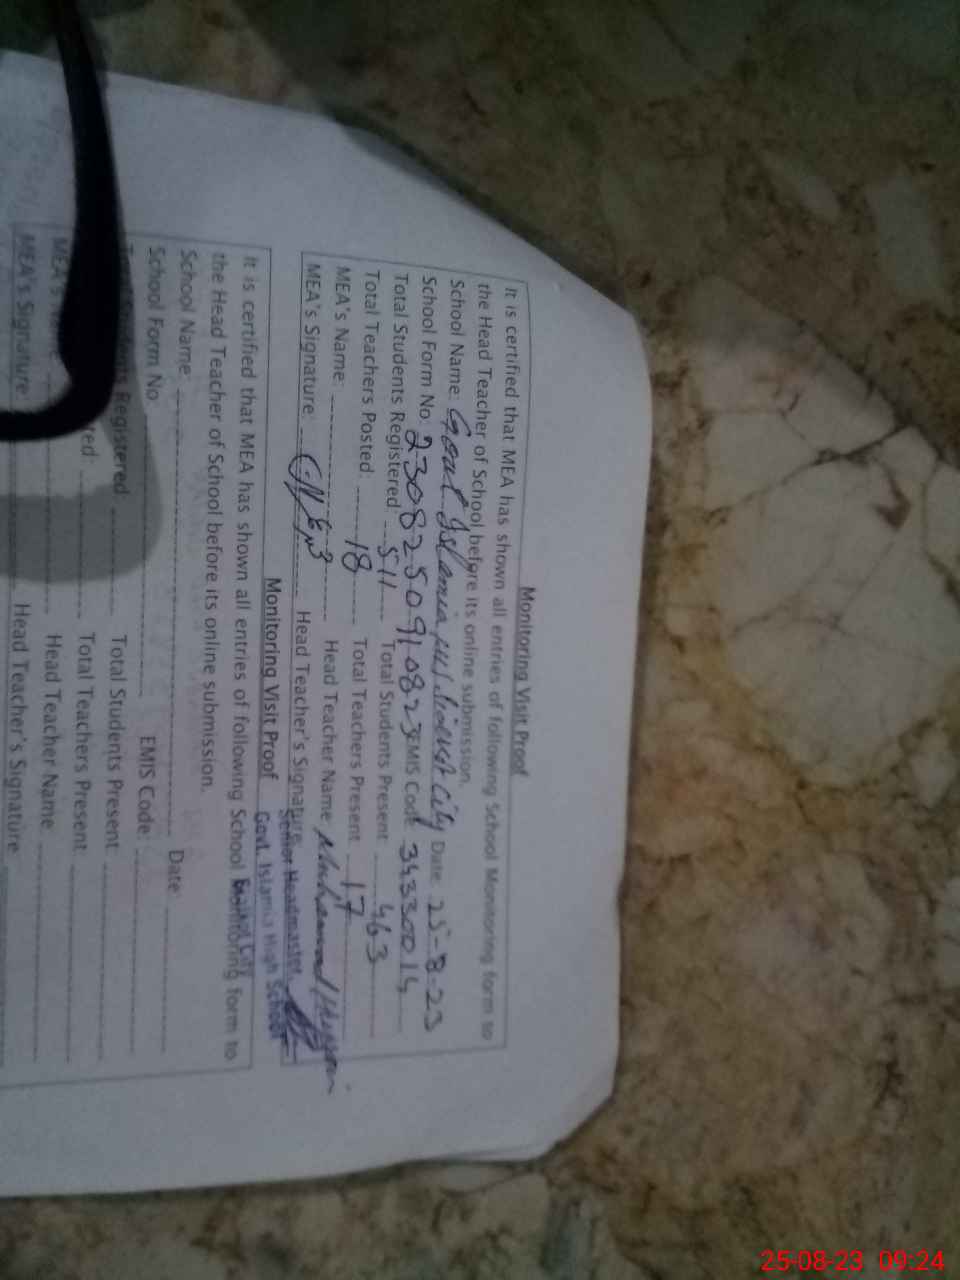 Monitoring Visit Proof
It is certified that MEA has shown all entries of following School Monitoring form to
the Head Teacher of School before its online submission.
School Name: Govt. Islamia City Date: 25-8-23
School Form No: 2308250910823 EMIS Code: 34330014
Total Students Registered: 511 Total Students Present 463
Total Teachers Posted: 18 Total Teachers Present 17
MEA's Name: Head Teacher Name Muhammad
MEA's Signature: Head Teacher's Signature
Senior Headmaster
Govt. Islamia High School
Monitoring Visit Proof
It is certified that MEA has shown all entries of following School Monitoring form to
the Head Teacher of School before its online submission.
School Name: Date:
School Form No. EMIS Code:
Registered: Total Students Present
Total Teachers Present
MEA's Head Teacher Name
MEA's Signature: Head Teacher's Signature
25-08-23 09:24